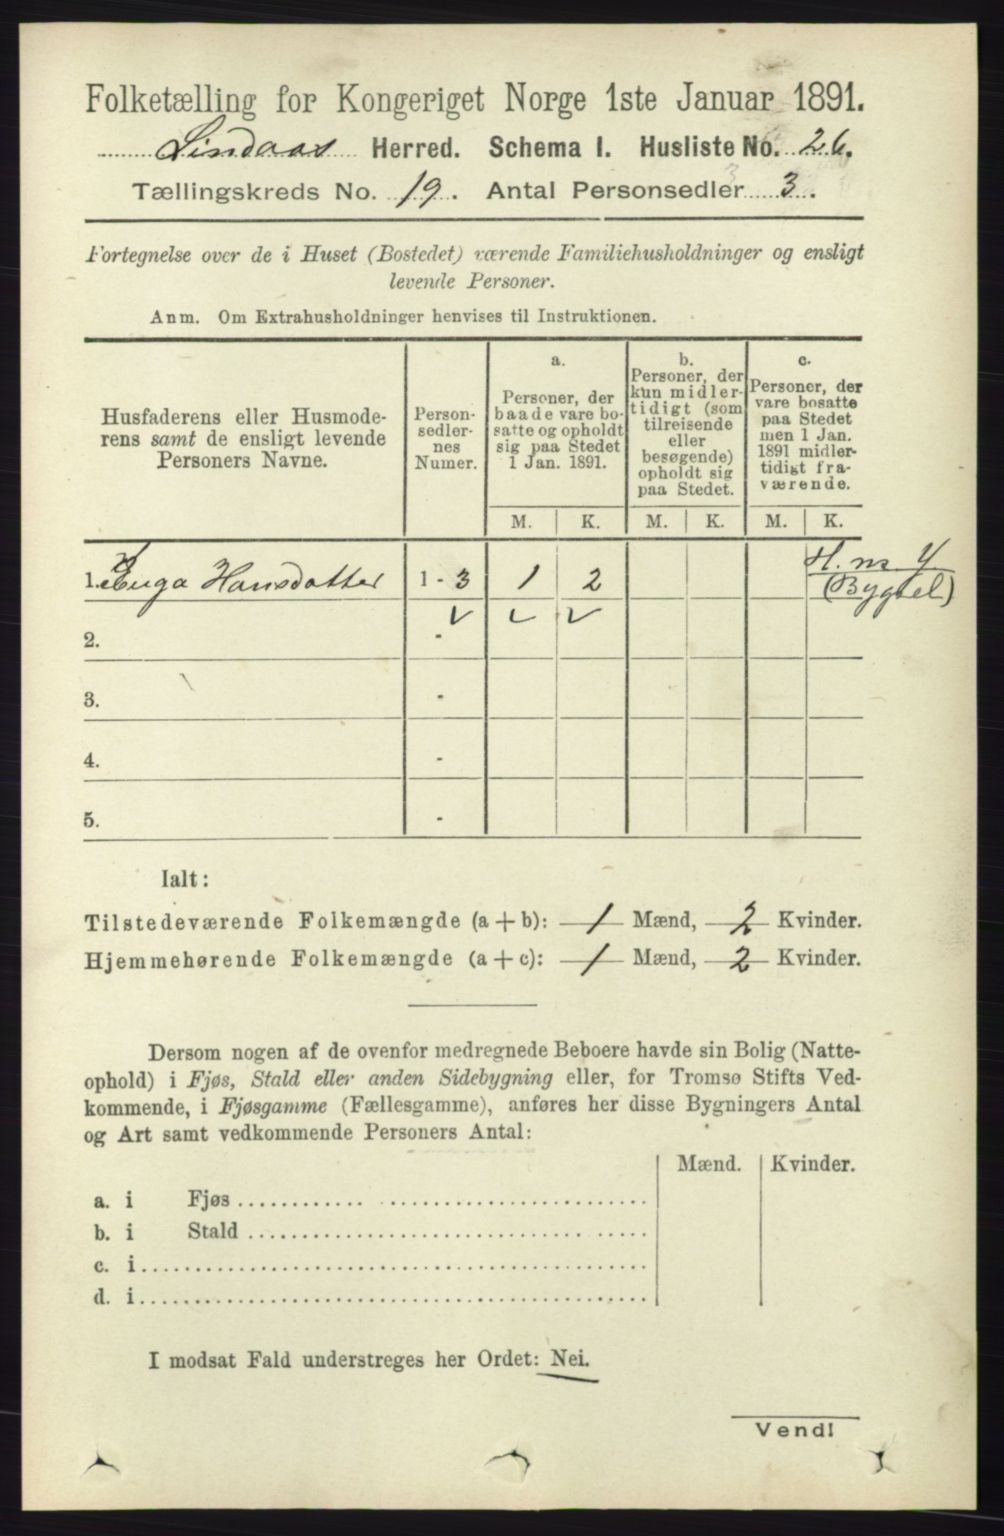 Folketælling for Kongeriget Norge 1ste Januar 1891.
Lindaas Herred. Schema I. Husliste No. 26.
Tællingskreds No. 19. Antal Personsedler 3.
Fortegnelse over de i Huset (Bostedet) værende Familiehusholdninger og ensligt
levende Personer.
Anm. Om Extrahusholdninger henvises til Instruktionen.
Husfaderens eller Husmode-
rens samt de ensligt levende
Personers Navne.
Person-
sedler-
nes
Numer.
a.
Personer, der
baade vare bo-
satte og opholdt
sig paa Stedet
1 Jan. 1891.
b.
Personer, der
kun midler-
tidigt (som
tilreisende
eller
besøgende)
opholdt sig
paa Stedet.
c.
Personer, der
vare bosatte
paa Stedet
men 1 Jan.
1891 midler-
tidigt fra-
værende.
M. K. M. K. M. K.
1. Hansdatter 1 - 3 1 2 H. m.
2. -
3. -
4. -
5. -
Ialt:
Tilstedeværende Folkemængde (a + b): 1 Mænd, 2 Kvinder.
Hjemmehørende Folkemængde (a + c): 1 Mænd, 2 Kvinder.
Dersom nogen af de ovenfor medregnede Beboere havde sin Bolig (Natte-
ophold) i Fjøs, Stald eller anden Sidebygning eller, for Tromsø Stifts Ved-
kommende, i Fjøsgamme (Fællesgamme), anføres her disse Bygningers Antal
og Art samt vedkommende Personers Antal:
Mænd. Kvinder.
a. i Fjøs
b. i Stald
c. i
d. i
I modsat Fald understreges her Ordet: Nei.
Vend!